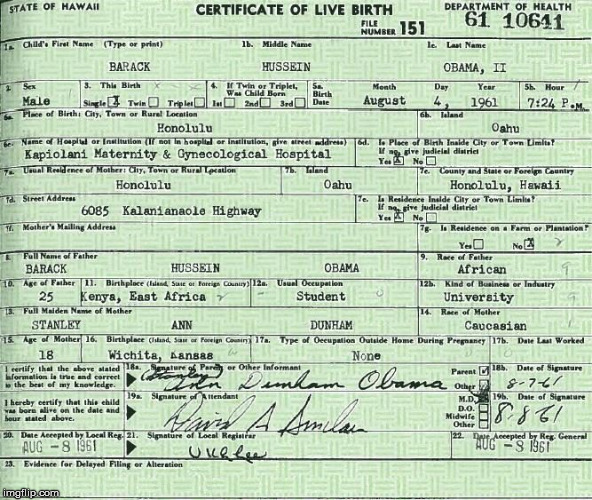 STATE OF HAWAII CERTIFICATE OF LIVE BIRTH DEPARTMENT OF HEALTH
FILE NUMBER 151 61 10641
1a. Child's First Name (Type or print) 1b. Middle Name 1c. Last Name
BARACK HUSSEIN OBAMA, II
2. Sex 3. This Birth 4. If Twin or Triplet, Was Child Born 5a. Birth Date Month Day Year 5b. Hour
Male Single X Twin Triplet 1st 2nd 3rd August 4, 1961 7:24 P.M.
6a. Place of Birth: City, Town or Rural Location 6b. Island
Honolulu Oahu
6c. Name of Hospital or Institution (If not in hospital or institution, give street address) 6d. Is Place of Birth Inside City or Town Limits? If no, give judicial district
Kapiolani Maternity & Gynecological Hospital Yes X No
7a. Usual Residence of Mother: City, Town or Rural Location 7b. Island 7c. County and State or Foreign Country
Honolulu Oahu Honolulu, Hawaii
7d. Street Address 7e. Is Residence Inside City or Town Limits? If no, give judicial district
6085 Kalanianaole Highway Yes X No
7f. Mother's Mailing Address 7g. Is Residence on a Farm or Plantation?
Yes No X
8. Full Name of Father 9. Race of Father
BARACK HUSSEIN OBAMA African 9
10. Age of Father 11. Birthplace (Island, State or Foreign Country) 12a. Usual Occupation 12b. Kind of Business or Industry
25 Kenya, East Africa Student University
13. Full Maiden Name of Mother 14. Race of Mother
STANLEY ANN DUNHAM Caucasian
15. Age of Mother 16. Birthplace (Island, State or Foreign Country) 17a. Type of Occupation Outside Home During Pregnancy 17b. Date Last Worked
18 Wichita, Kansas None
I certify that the above stated information is true and correct to the best of my knowledge. 18a. Signature of Parent or Other Informant Parent Other 18b. Date of Signature
(Stanley) Ann Dunham Obama 8-7-61
I hereby certify that this child was born alive on the date and hour stated above. 19a. Signature of Attendant M.D. D.O. Midwife Other 19b. Date of Signature
David A Sinclair 8-8-61
20. Date Accepted by Local Reg. 21. Signature of Local Registrar 22. Date Accepted by Reg. General
AUG -8 1961 U K Lee AUG -8 1961
23. Evidence for Delayed Filing or Alteration
imgflip.com